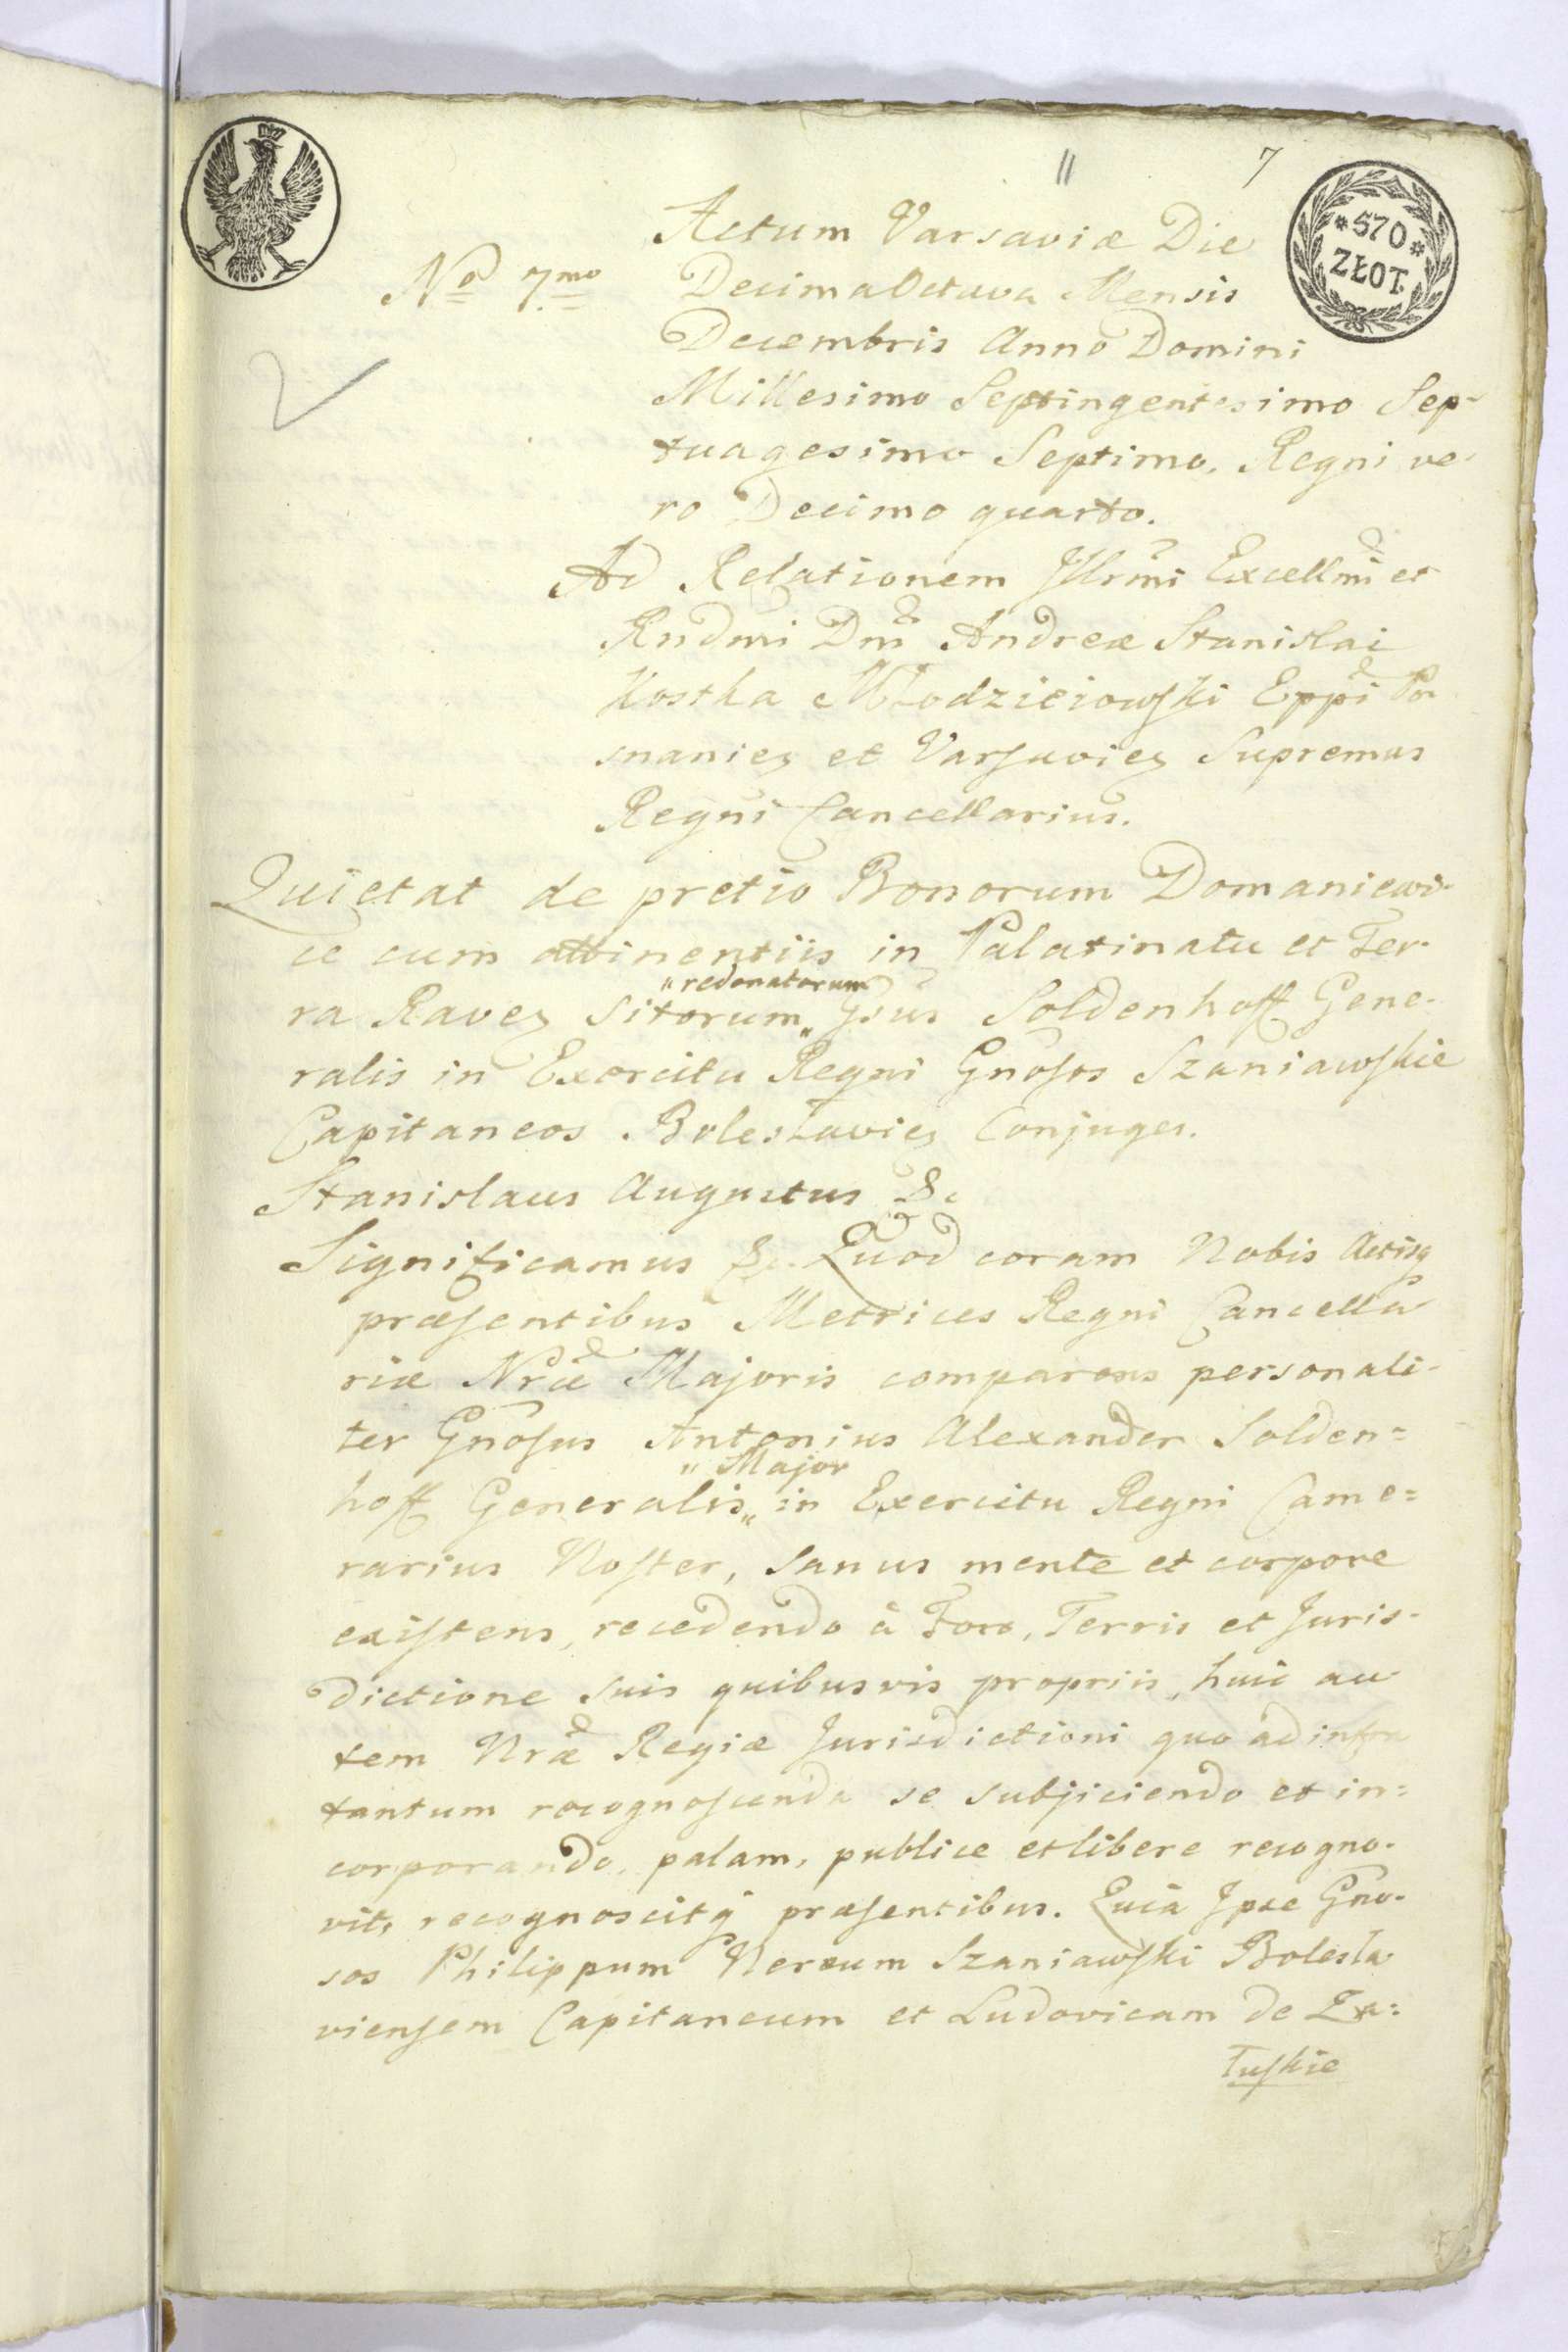 11 7
*570*
ZŁOT.
Actum Varsaviæ Die
No 7mo Decima Octava Mensis
Decembris Anno Domini
Millesimo Septingentesimo Sep-
tuagesimo Septimo, Regni ve-
ro Decimo quarto.
Ad Relationem Jllrmi Excellmi et
Rndmi Dni Andreæ Stanislai
Kostka Młodzieiowski Eppi Po-
snanieȝ et Varsavieȝ Supremus
Regni Cancellarius.
Quietat de pretio Bonorum Domaniewi-
ce cum attinentiis in Palatinatu et Ter-
"redonatorum
ra Raveȝ Sitorum" Gsus Soldenhoff Gene-
ralis in Exercitu Regni Gnosos Szaniawskie
Capitaneos Bolesłavieȝ Conjuges.
Stanislaus Augustus &c
Significamus &c. Quod coram Nobis Actisq
præsentibus Metrices Regni Cancella
riæ Nræ Majoris comparens personali-
ter Gnosus Antonius Alexander Solden=
" Major
hoff Generalis" in Exercitu Regni Came=
rarius Noster, sanus mente et corpore
existens, recedendo à Foro, Terris et Juris-
dictione suis quibusvis propriis, huic au
tem Nræ Regiæ Jurisdictioni quo ad infra
tantum recognoscenda se subjiciendo et in=
corporando, palam, publice et libere recogno-
vit, recognoscitq præsentibus. Quia Ipse Gno-
sos Philippum Nereum Szaniawski Bolesła
viensem Capitaneum et Ludovicam de Za=
łuskie